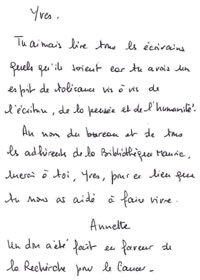 Yves.
Tu aimais lire tous les écrivains
quels qu'ils soient car tu avais un
esprit de tolérance vis à vis de
l'écriture, de la pensée et de l'humanité.
Au nom du bureau et de tous
les adhérents de la Bibliothèque
merci à toi, Yves, pour ce lien que
tu nous as aidé à faire vivre.
Annette
Un don a été fait en faveur de
la Recherche pour le Cancer.